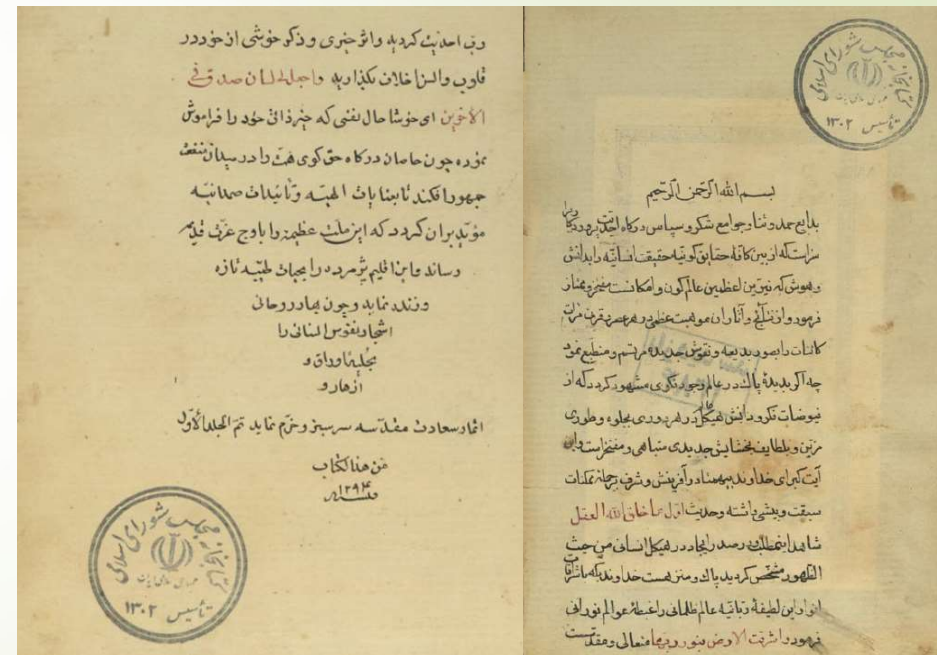 بسم الله الرحمن الرحیم
بدایع حمد و ثنا و جوامع شکر و سپاس درگاه احدیت پروردگاری را
سزاست که از بین کافه حقایق کونیه حقیقت انسانیه را بدانش
و هوش که نیرین اعظمین عالم کون و امکانست مفتخر و ممتاز
فرمود و از نتائج و آثار آن موهبت عظمی در هر عصر و قرن مرآت
کائنات را بصور بدیعه و نقوش جدیده مرتسم و منطبع نمود
چه اگر بدیدهٔ پاک در عالم وجود نگری مشهود گردد که از
فیوضات فکر و دانش هیکل عالم در هر دوری بجلوه و طوری
مزین و بلطایف بخشایش جدیدی متباهی و مفتخر است و این
آیت کبرای خداوند بیهمتا در آفرینش و شرف بر جمله ممکنات
سبقت و پیشی داشته و حدیث اول ما خلق الله العقل
شاهد این مطلب و در صدر ایجاد در هیکل انسانی من حیث
الظهور مشخص گردید پاک و منزهست خداوندیکه باشراقات
انوار این لطیفهٔ ربانیه عالم ظلمانی را غبطهٔ عوالم نورانی
فرمود و اشرقت الارض بنور ربها متعالی و مقدست
کتابخانه مجلس شورای اسلامی
تأسیس ۱۳۰۲
احدیت گردید و اثر خیری و ذکر خوشی از خود در
قلوب و السن اخلاف بگذارید واجعل لی لسان صدق فی
الآخرین ای خوشا حال نفسی که خیر ذاتی خود را فراموش
نموده چون خاصان درگاه حق گوی همت را در میدان منفعت
جمهور افکند تا بعنایات الهیه و تأئیدات صمدانیه
مؤید بر آن گردد که این ملت عظیمه را باوج عزت قدیمه
رساند و این اقلیم پژمرده را بحیات طیبه تازه
و زنده نماید و چون بهار روحانی
اشجار نفوس انسانی را
بحلیهٔ اوراق و
ازهار و
اثمار سعادت مقدسه سرسبز و خرم نماید تم المجلد الاول
من هذا الکتاب
۱۲۹۴
کتابخانه مجلس شورای اسلامی
تأسیس ۱۳۰۲